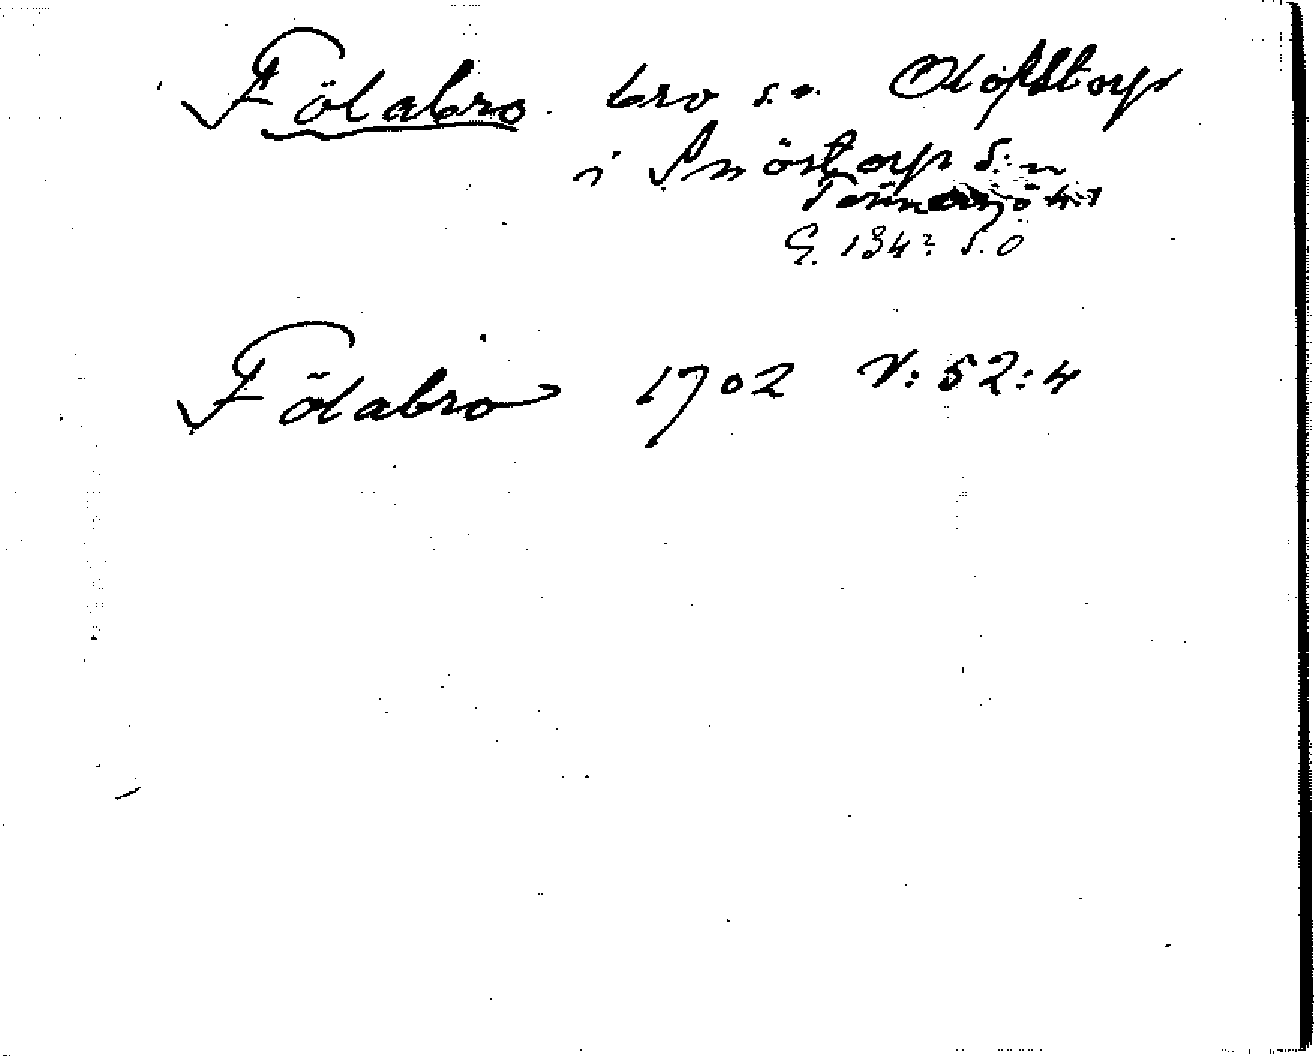 Födabro bro s.o. Olofstorp
i Snöstorp s:n
Tönnersjö hd
G. 134? S.Ö
Födabro 1702 V:52:4